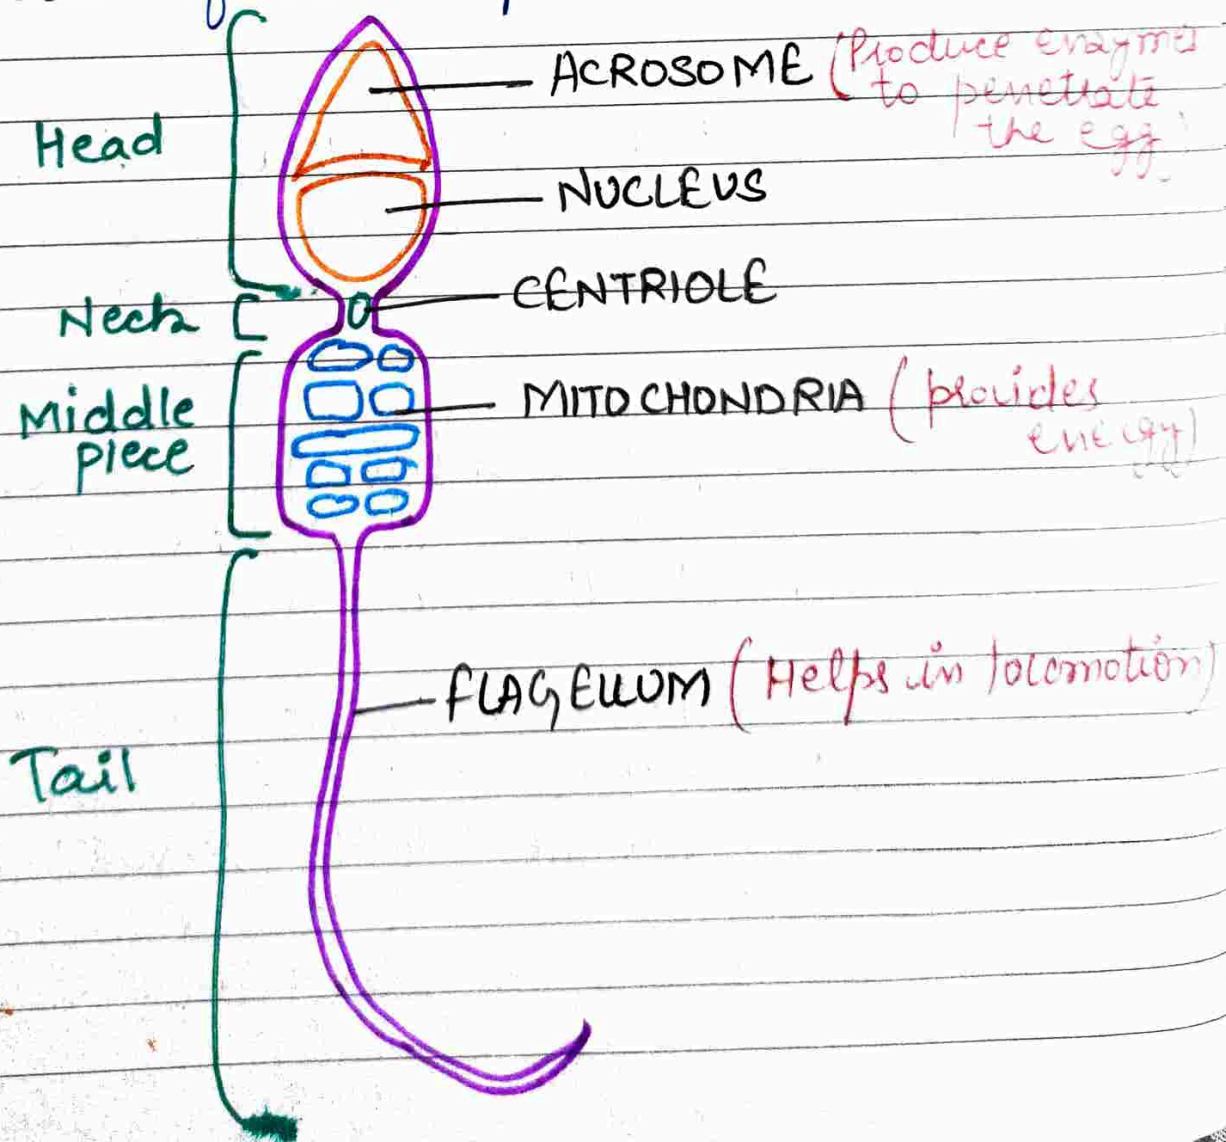 ACROSOME (Produce enzymes
to penetrate
the egg)
Head
NUCLEUS
CENTRIOLE
Neck
Middle
piece
MITOCHONDRIA (provides
energy)
FLAGELLUM (Helps in locomotion)
Tail